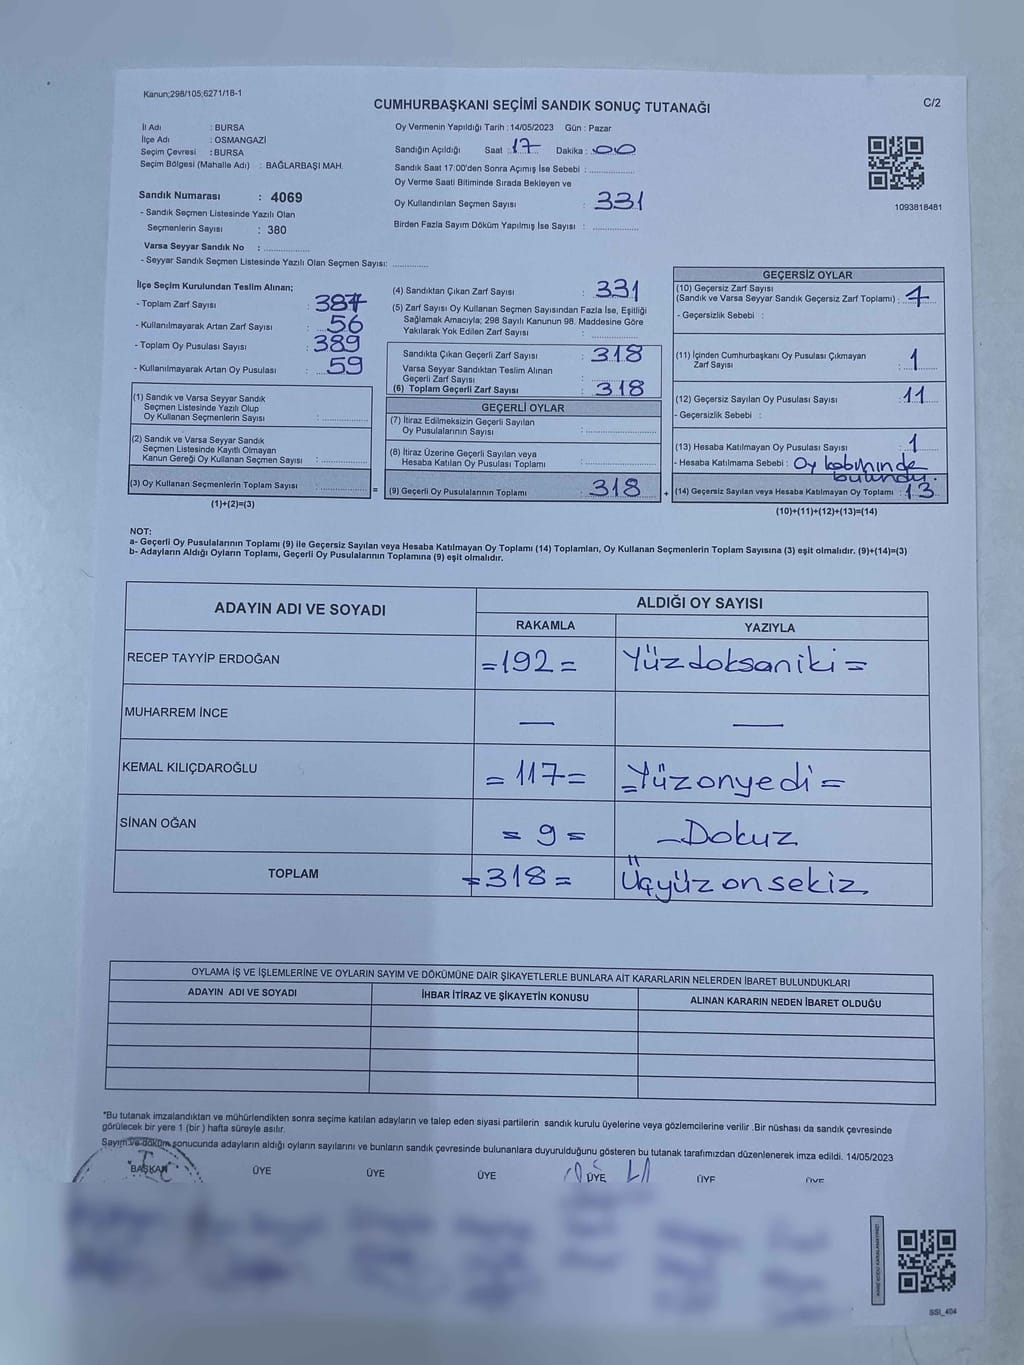 Kanun;298/105;6271/18-1
CUMHURBAŞKANI SEÇİMİ SANDIK SONUÇ TUTANAĞI
C/2
İl Adı : BURSA
İlçe Adı : OSMANGAZİ
Seçim Çevresi : BURSA
Seçim Bölgesi (Mahalle Adı) : BAĞLARBAŞI MAH.
Sandık Numarası : 4069
- Sandık Seçmen Listesinde Yazılı Olan
Seçmenlerin Sayısı : 380
Varsa Seyyar Sandık No : ..............
- Seyyar Sandık Seçmen Listesinde Yazılı Olan Seçmen Sayısı: ............
Oy Vermenin Yapıldığı Tarih : 14/05/2023 Gün : Pazar
Sandığın Açıldığı Saat : 17 Dakika : 00
Sandık Saat 17:00'den Sonra Açımış İse Sebebi : ..............
Oy Verme Saati Bitiminde Sırada Bekleyen ve
Oy Kullandırılan Seçmen Sayısı : 331
Birden Fazla Sayım Döküm Yapılmış İse Sayısı : ..............
1093818481
İlçe Seçim Kurulundan Teslim Alınan;
- Toplam Zarf Sayısı : 387
- Kullanılmayarak Artan Zarf Sayısı : 56
- Toplam Oy Pusulası Sayısı : 389
- Kullanılmayarak Artan Oy Pusulası : 59
(1) Sandık ve Varsa Seyyar Sandık
Seçmen Listesinde Yazılı Olup
Oy Kullanan Seçmenlerin Sayısı : ..............
(2) Sandık ve Varsa Seyyar Sandık
Seçmen Listesinde Kayıtlı Olmayan
Kanun Gereği Oy Kullanan Seçmen Sayısı : ..............
(3) Oy Kullanan Seçmenlerin Toplam Sayısı : ..............
(1)+(2)=(3)
=
(4) Sandıktan Çıkan Zarf Sayısı : 331
(5) Zarf Sayısı Oy Kullanan Seçmen Sayısından Fazla İse, Eşitliği
Sağlamak Amacıyla; 298 Sayılı Kanunun 98. Maddesine Göre
Yakılarak Yok Edilen Zarf Sayısı : ..............
Sandıkta Çıkan Geçerli Zarf Sayısı : 318
Varsa Seyyar Sandıktan Teslim Alınan
Geçerli Zarf Sayısı : ..............
(6) Toplam Geçerli Zarf Sayısı : 318
GEÇERLİ OYLAR
(7) İtiraz Edilmeksizin Geçerli Sayılan
Oy Pusulalarının Sayısı : ..............
(8) İtiraz Üzerine Geçerli Sayılan veya
Hesaba Katılan Oy Pusulası Toplamı : ..............
(9) Geçerli Oy Pusulalarının Toplamı : 318
+
GEÇERSİZ OYLAR
(10) Geçersiz Zarf Sayısı
(Sandık ve Varsa Seyyar Sandık Geçersiz Zarf Toplamı) :
- Geçersizlik Sebebi :
(11) İçinden Cumhurbaşkanı Oy Pusulası Çıkmayan
Zarf Sayısı : 1
(12) Geçersiz Sayılan Oy Pusulası Sayısı : 11
- Geçersizlik Sebebi :
(13) Hesaba Katılmayan Oy Pusulası Sayısı : 1
- Hesaba Katılmama Sebebi : Oy kabininde
bulundu.
(14) Geçersiz Sayılan veya Hesaba Katılmayan Oy Toplamı : 13
(10)+(11)+(12)+(13)=(14)
NOT:
a- Geçerli Oy Pusulalarının Toplamı (9) ile Geçersiz Sayılan veya Hesaba Katılmayan Oy Toplamı (14) Toplamları, Oy Kullanan Seçmenlerin Toplam Sayısına (3) eşit olmalıdır. (9)+(14)=(3)
b- Adayların Aldığı Oyların Toplamı, Geçerli Oy Pusulalarının Toplamına (9) eşit olmalıdır.
ADAYIN ADI VE SOYADI ALDIĞI OY SAYISI
RAKAMLA YAZIYLA
RECEP TAYYİP ERDOĞAN =192= Yüzdoksaniki=
MUHARREM İNCE — —
KEMAL KILIÇDAROĞLU =117= =Yüzonyedi=
SİNAN OĞAN =9= -Dokuz
TOPLAM =318= Üçyüzonsekiz
OYLAMA İŞ VE İŞLEMLERİNE VE OYLARIN SAYIM VE DÖKÜMÜNE DAİR ŞİKAYETLERLE BUNLARA AİT KARARLARIN NELERDEN İBARET BULUNDUKLARI
ADAYIN ADI VE SOYADI İHBAR İTİRAZ VE ŞİKAYETİN KONUSU ALINAN KARARIN NEDEN İBARET OLDUĞU
*Bu tutanak imzalandıktan ve mühürlendikten sonra seçime katılan adayların ve talep eden siyasi partilerin sandık kurulu üyelerine veya gözlemcilerine verilir .Bir nüshası da sandık çevresinde
görülecek bir yere 1 (bir ) hafta süreyle asılır.
Sayım ve döküm sonucunda adayların aldığı oyların sayılarını ve bunların sandık çevresinde bulunanlara duyurulduğunu gösteren bu tutanak tarafımızdan düzenlenerek imza edildi. 14/05/2023
BAŞKAN ÜYE ÜYE ÜYE ÜYE ÜYE ÜYE
SSI_404